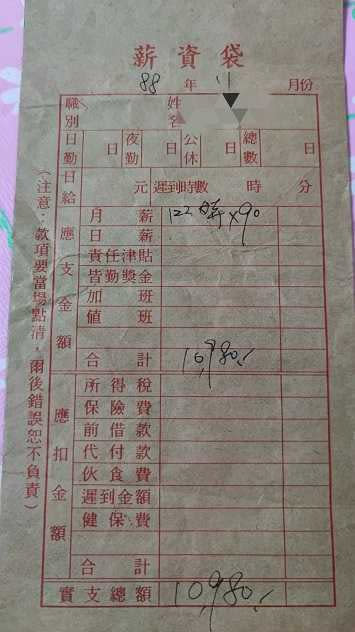 薪資袋
88 年 11 月份
職別 姓名
日勤 日 夜勤 日 公休 日 總數 日
日給 元 遲到時數 時 分
應支金額
月薪 122時×90
日薪
責任津貼
皆勤獎金
加班
值班
合計 10,980.-
應扣金額
所得稅
保險費
前借款
代付款
伙食費
遲到金額
健保費
合計
實支總額 10,980.-
(注意：款項要當場點清，爾後錯誤恕不負責)